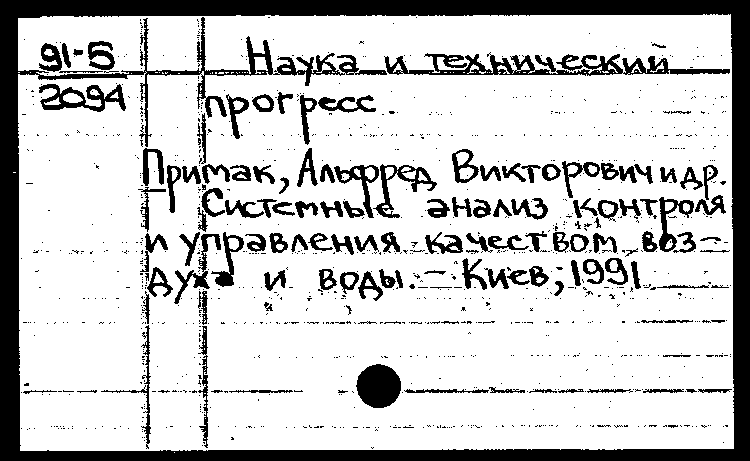 91-5
2094
Наука и технический
прогресс.
Примак, Альфред Викторович и др.
Системные анализ контроля
и управления качеством воз-
духа и воды. - Киев, 1991